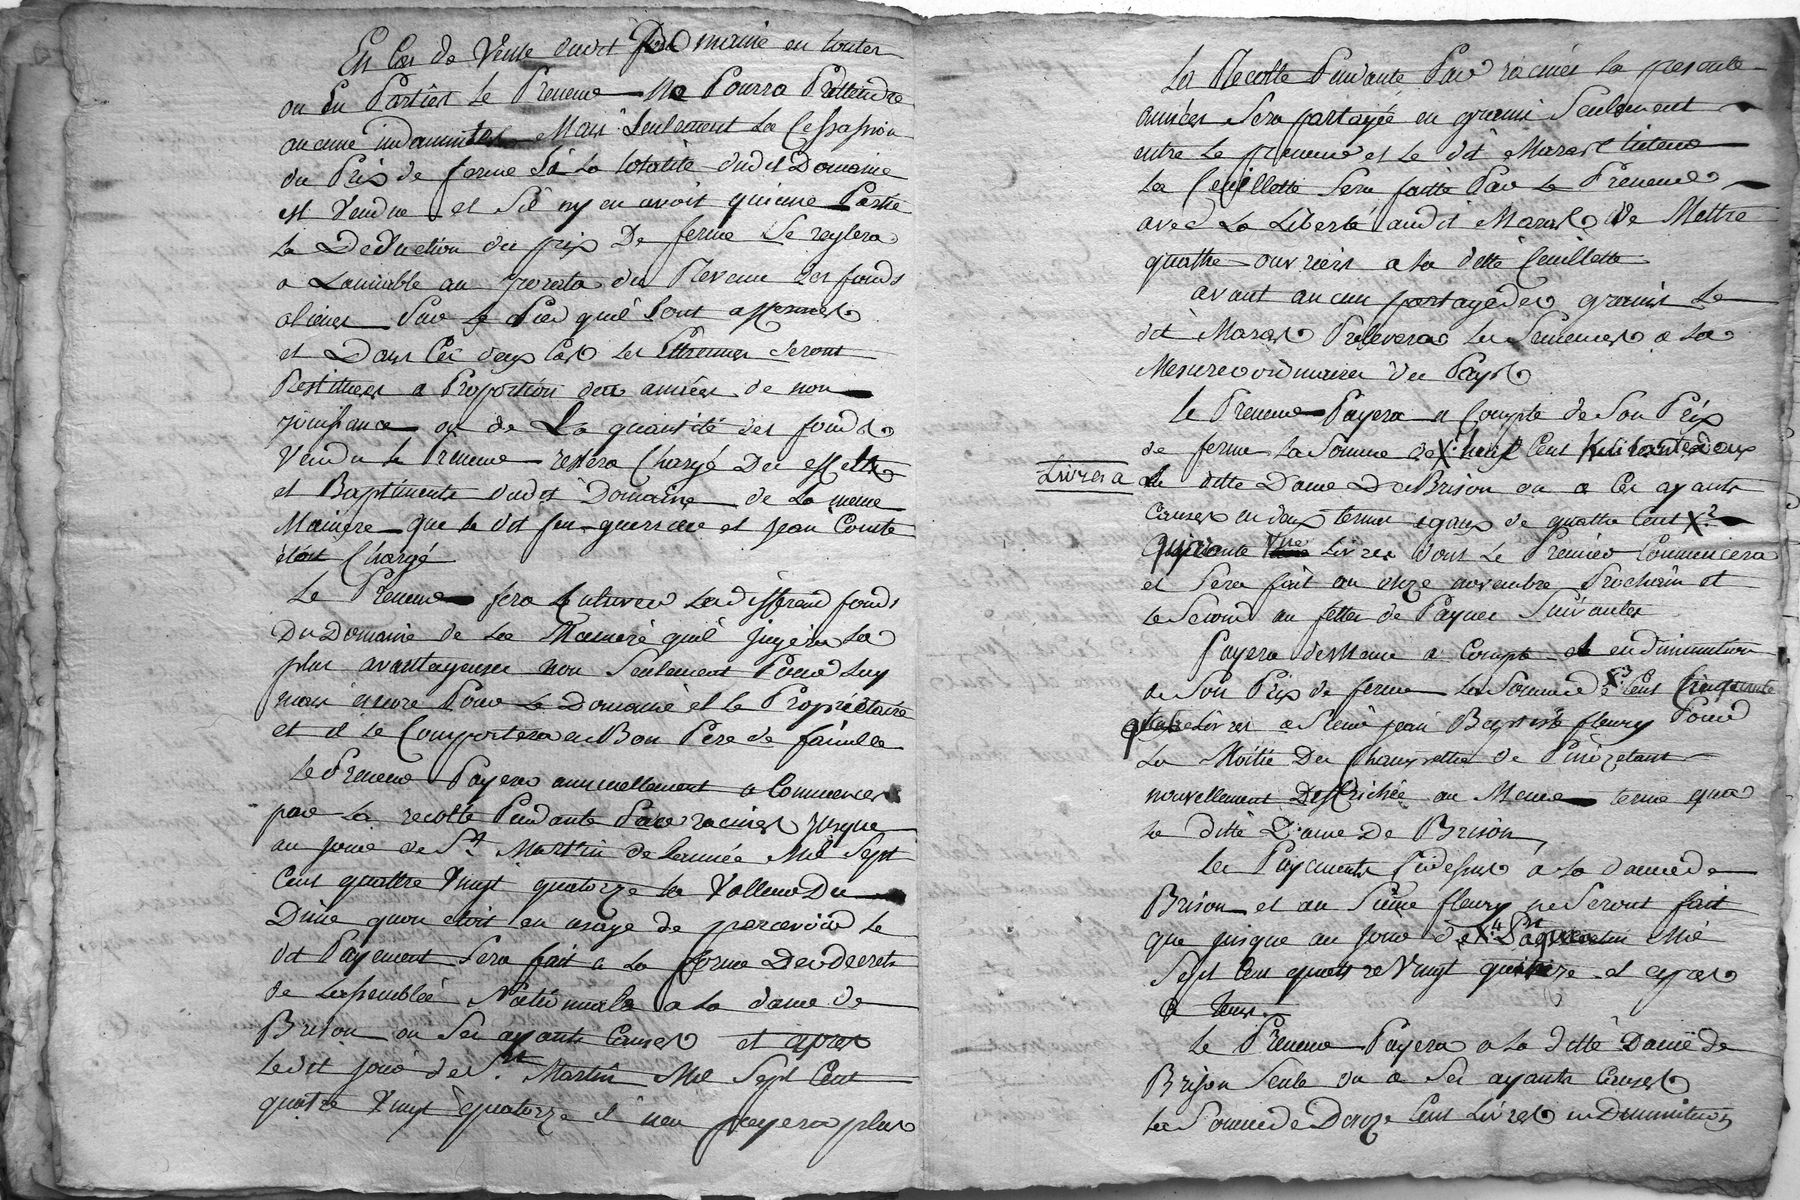 En Cas de Vente dudit Domaine en toutes
ou En Parties le Preneur Ne Pourra Prettendre
aucune indamnités Mais Seulement la Cessassion
du Prix de ferme Si la totalité dudit Domaine
est Vendue et Sil ny en avoit quiune Partie
la Deduction du prix De ferme Se reglera
a Lamiable au prorata du Revenu des fonds
alienes Sur le Pied quil Sont affermes
et Dans Ces deux Cas les Ettrennes Seront
Restituees a Proportion des années de non
jouissance ou de La quantité des fonds
Vendu le Preneur restera Chargé Des effets
et Baptiments dudit Domaine de la meme
Maniere que le dit feu et jean Comte
étoit Chargé
Le Preneur fera Cultiver les differand fonds
Du Domaine de la Maniere quil jugera la
plus avantageuse non Seulement Pour Luy
mais encore Pour Le Domaine et le Propriétaire
et il Se Comportera en Bon Pere de famille
Le Preneur Payera annuellement a Commencer
par la recolte Pandante Par racines jusque
au jour de St Martin de lannée Mil Sept
Cent quattre Vingt quatorze la Valleur Du
Dime quon etoit en usage de percevoir le
dit Payement Sera fait a la forme Des decrets
de Lassemblée Nationnale a la dame de
Brison ou Ses ayants Causes et apres
ledit jour de St Martin Mil Sept Cent
quatre Vingt quatorze il nen payera plus
La Recolte Pandante Par racines la presente
années Sera partagée en grains Seulement
entre Le preneur et le dit Maras
La Ceuillette Sera faitte Par Le Preneur
avec La Liberté audit Maras de Mettre
quatre ouvriers a la ditte Ceuillette
avant aucun partage des grains Le
dit Maras Prelevera les Semences a la
Mesure ordinaire du Pays
Le Preneur Payera a Compte de Son Prix
de ferme la Somme de X. neuf Cent deux
Livres a la ditte Dame De Brison ou a Ces ayants
Causes en deux termes egaux de quattre Cent X.2
Livres Dont Le Premier Commencera
et Sera fait au onze novembre Prochain et
le Second au fettes de Paques Suivantes
Payera de Meme a Compte et en diminution
de Son Prix de ferme la Somme de X.3 Cent Cinquante
quatre Livres a Sieur jean Baptiste fleury Pour
La Moitié Des de
nouvellement Deffrichée au Meme terme qua
la ditte Dame De Brison
Les Payements Cidessus a la dame de
Brison et au Sieur fleury ne Seront fait
que jusque au jour de X.4 Mil
Sept Cent quattre Vingt et apres
Le Preneur Payera a la ditte Dame de
Brison Seule ou a Ses ayants Causes
la Somme de Douze Cent Livres en Diminution